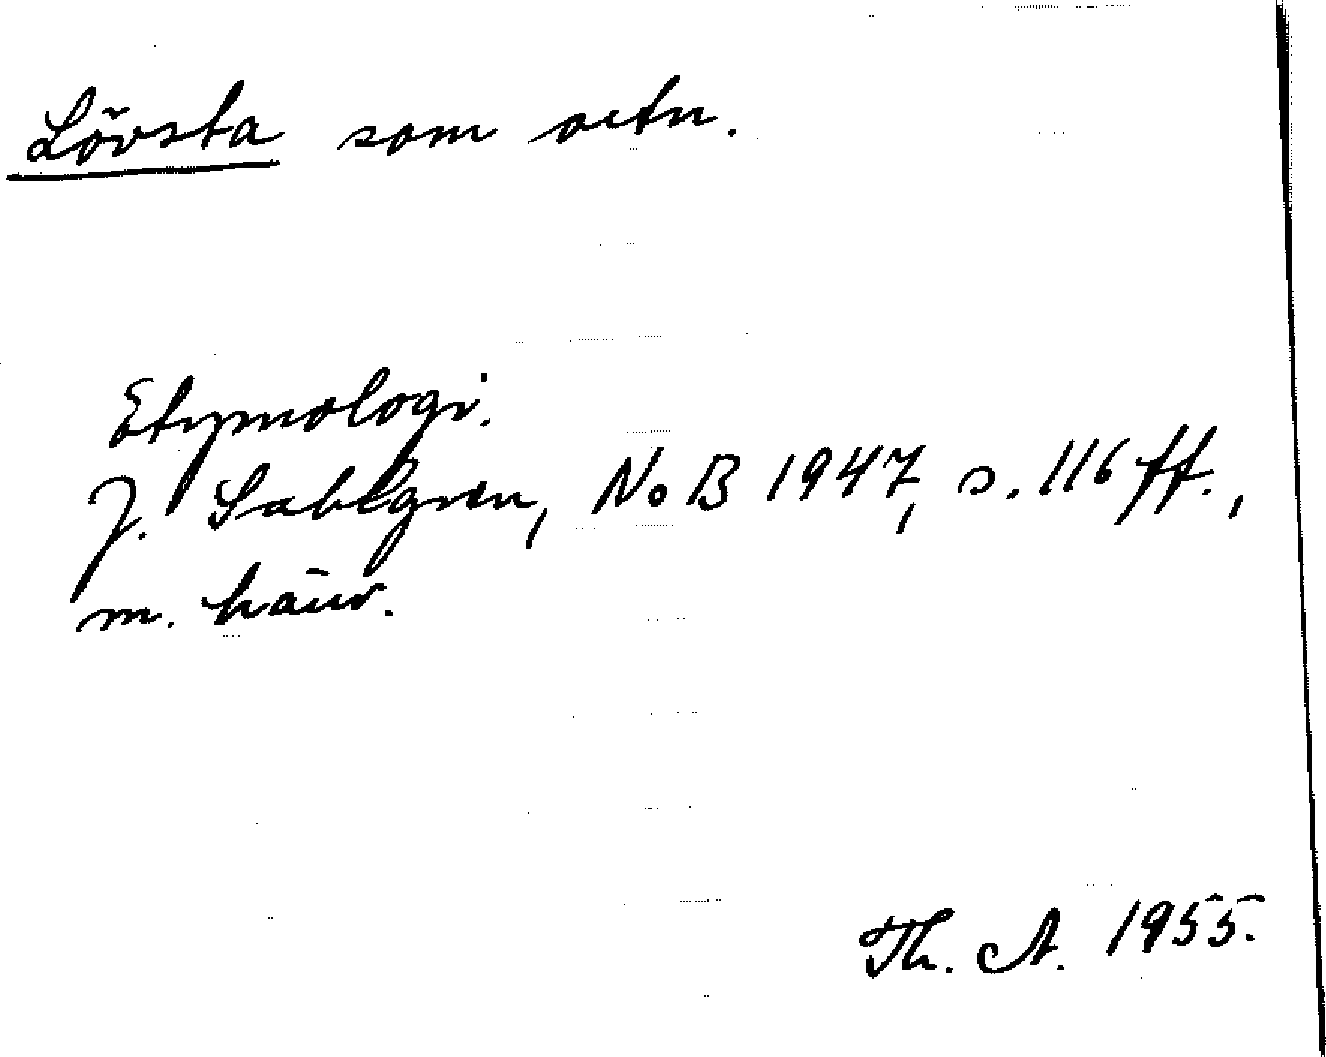 Lövsta som ortn.
Etymologi.
J. Sahlgren, NoB 1947, s. 116 ff.,
m. hänv.
Th. A. 1955.